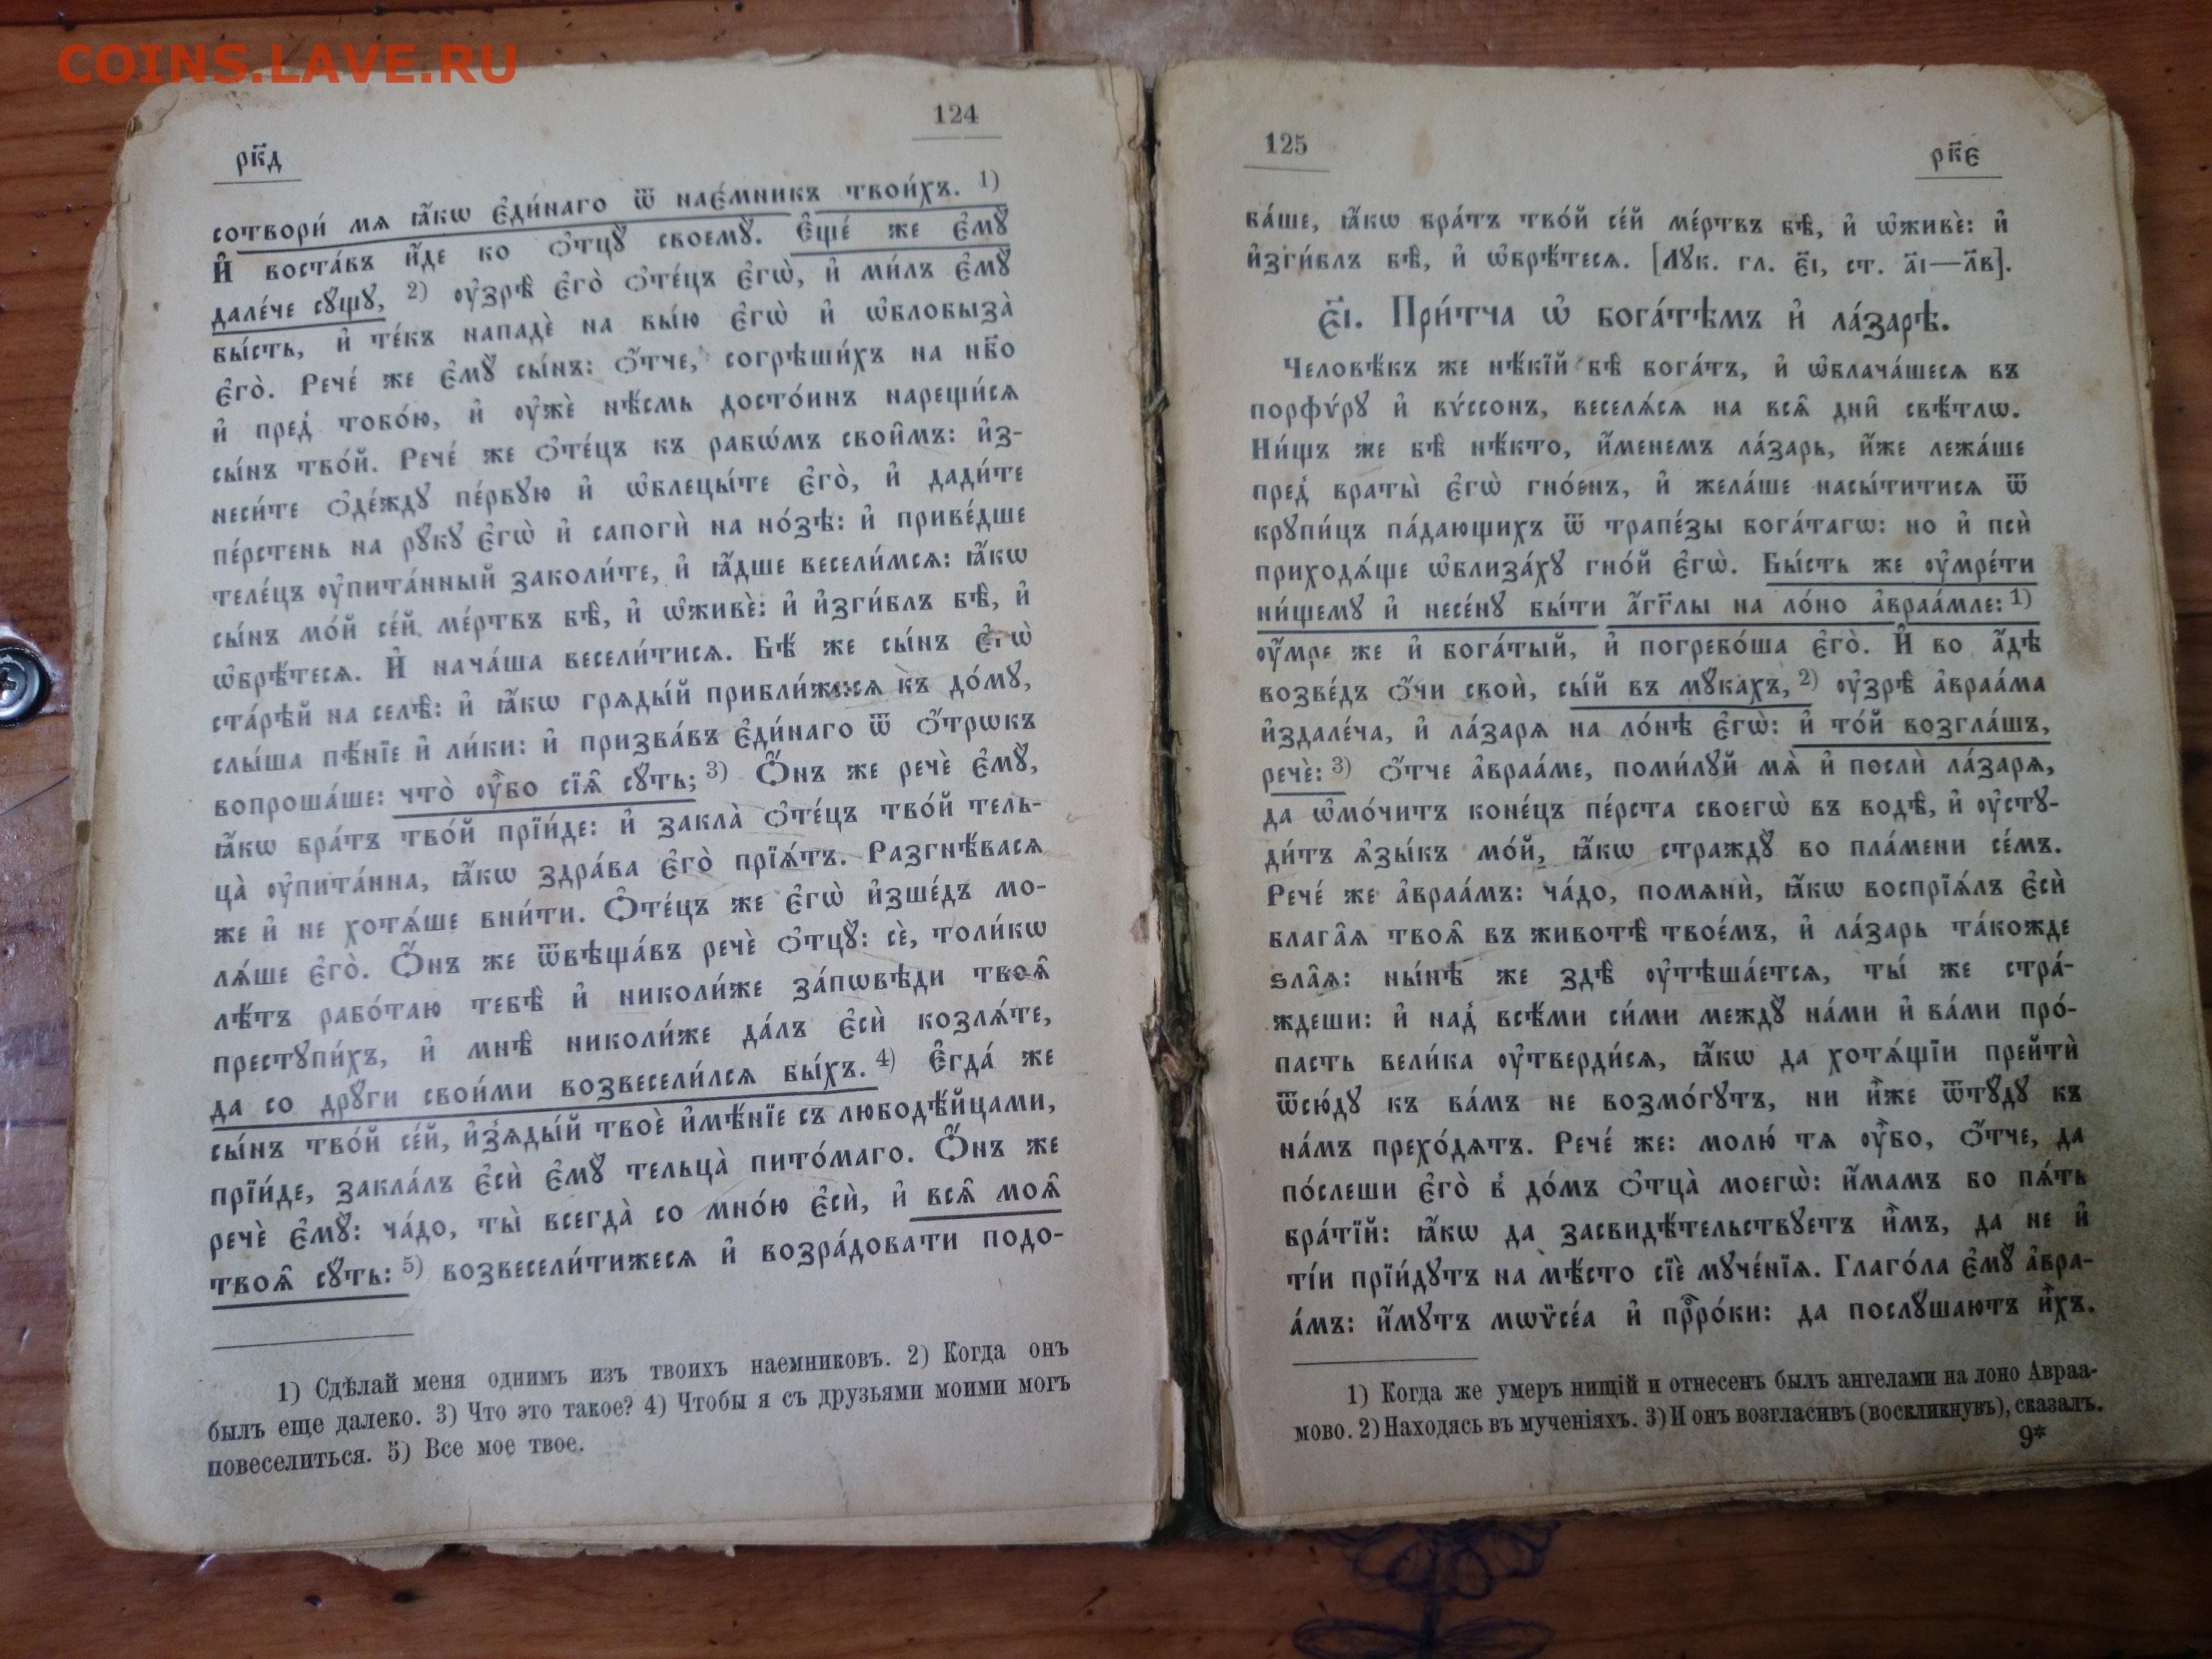 COINS.LAVE.RU
124
рк҃д
сотвори́ мѧ ꙗ҆́кѡ є҆ди́наго ѿ нає́мникъ твои́хъ. 1)
И҆ воста́въ и҆́де ко ѻ҆тцꙋ̀ своемꙋ̀. Є҆ще́ же є҆мꙋ̀
дале́че сꙋ́щꙋ, 2) ᲂу҆зрѣ̀ є҆го̀ ѻ҆те́цъ є҆гѡ̀, и҆ ми́лъ є҆мꙋ̀
бы́сть, и҆ те́къ нападѐ на вы́ю є҆гѡ̀ и҆ ѡ҆блобыза̀
є҆го̀. Рече́ же є҆мꙋ̀ сы́нъ: ѻ҆́тче, согрѣши́хъ на нб҃о
и҆ пред̾ тобо́ю, и҆ ᲂу҆жѐ нѣ́смь досто́инъ нарещи́сѧ
сы́нъ тво́й. Рече́ же ѻ҆те́цъ къ рабѡ́мъ свои̑мъ: и҆з-
неси́те ѻ҆де́ждꙋ пе́рвꙋю и҆ ѡ҆блецы́те є҆го̀, и҆ дади́те
пе́рстень на рꙋ́кꙋ є҆гѡ̀ и҆ сапогѝ на но́зѣ: и҆ приве́дше
теле́цъ ᲂу҆пита́нный заколи́те, и҆ ꙗ҆́дше весели́мсѧ: ꙗ҆́кѡ
сы́нъ мо́й се́й ме́ртвъ бѣ̀, и҆ ѡ҆живѐ: и҆ и҆зги́блъ бѣ̀, и҆
ѡ҆брѣ́тесѧ. И҆ нача́ша весели́тисѧ. Бѣ́ же сы́нъ є҆гѡ̀
ста́рѣй на селѣ̀: и҆ ꙗ҆́кѡ грѧды́й прибли́жисѧ къ до́мꙋ,
слы́ша пѣ́нїе и҆ ли́ки: и҆ призва́въ є҆ди́наго ѿ ѻ҆́трѡкъ
вопроша́ше: что̀ ᲂу҆̀бо сїѧ̑ сꙋ́ть; 3) Ѻ҆́нъ же речѐ є҆мꙋ̀,
ꙗ҆́кѡ бра́тъ тво́й прїи́де: и҆ закла̀ ѻ҆те́цъ тво́й тель-
ца̀ ᲂу҆пита́нна, ꙗ҆́кѡ здра́ва є҆го̀ прїѧ́тъ. Разгнѣ́васѧ
же и҆ не хотѧ́ше вни́ти. Ѻ҆те́цъ же є҆гѡ̀ и҆зше́дъ мо-
лѧ́ше є҆го̀. Ѻ҆́нъ же ѿвѣща́въ речѐ ѻ҆тцꙋ̀: сѐ, толи́кѡ
лѣ́тъ рабо́таю тебѣ̀ и҆ николи́же за́пѡвѣди твоѧ̑
престꙋпи́хъ, и҆ мнѣ̀ николи́же да́лъ є҆сѝ козлѧ́те,
да со дрꙋ́ги свои́ми возвесели́лсѧ бы́хъ. 4) Є҆гда́ же
сы́нъ тво́й се́й, и҆з̾ѧды́й твоѐ и҆мѣ́нїе съ любодѣ́йцами,
прїи́де, закла́лъ є҆сѝ є҆мꙋ̀ тельца̀ пито́маго. Ѻ҆́нъ же
речѐ є҆мꙋ̀: ча́до, ты̀ всегда̀ со мно́ю є҆сѝ, и҆ всѧ̑ моѧ̑
твоѧ̑ сꙋ́ть: 5) возвесели́тижесѧ и҆ возра́довати подо-
1) Сдѣлай меня однимъ изъ твоихъ наемниковъ. 2) Когда онъ
былъ еще далеко. 3) Что это такое? 4) Чтобы я съ друзьями моими могъ
повеселиться. 5) Все мое твое.
125
рк҃є
ва́ше, ꙗ҆́кѡ бра́тъ тво́й се́й ме́ртвъ бѣ̀, и҆ ѡ҆живѐ: и҆
и҆зги́блъ бѣ̀, и҆ ѡ҆брѣ́тесѧ. [Лꙋк. гл. є҃і, ст. а҃і—л҃в].
є҃і. При́тча ѡ҆ бога́тѣмъ и҆ ла́зарѣ.
Человѣ́къ же нѣ́кїй бѣ̀ бога́тъ, и҆ ѡ҆блача́шесѧ въ
порфѵ́рꙋ и҆ вѵ́ссонъ, веселѧ́сѧ на всѧ̑ дни̑ свѣ́тлѡ.
Ни́щъ же бѣ̀ нѣ́кто, и҆́менемъ ла́зарь, и҆́же лежа́ше
пред̾ враты̀ є҆гѡ̀ гно́енъ, и҆ жела́ше насы́титисѧ ѿ
крꙋпи́цъ па́дающихъ ѿ трапе́зы бога́тагѡ: но и҆ псѝ
приходѧ́ще ѡ҆близа́хꙋ гно́й є҆гѡ̀. Бы́сть же ᲂу҆мре́ти
ни́щемꙋ и҆ несе́нꙋ бы́ти а҆́гг҃лы на ло́но а҆враа́мле: 1)
ᲂу҆́мре же и҆ бога́тый, и҆ погребо́ша є҆го̀. И҆ во а҆́дѣ
возве́дъ ѻ҆́чи своѝ, сы́й въ мꙋ́кахъ, 2) ᲂу҆зрѣ̀ а҆враа́ма
и҆здале́ча, и҆ ла́зарѧ на ло́нѣ є҆гѡ̀: и҆ то́й возгла́шъ,
речѐ: 3) ѻ҆́тче а҆враа́ме, поми́лꙋй мѧ̀ и҆ послѝ ла́зарѧ,
да ѡ҆мо́читъ коне́цъ пе́рста своегѡ̀ въ водѣ̀, и҆ ᲂу҆стꙋ-
ди́тъ ѧ҆зы́къ мо́й, ꙗ҆́кѡ страждꙋ̀ во пла́мени се́мъ.
Рече́ же а҆враа́мъ: ча́до, помѧнѝ, ꙗ҆́кѡ воспрїѧ́лъ є҆сѝ
блага̑ѧ твоѧ̑ въ животѣ̀ твое́мъ, и҆ ла́зарь та́кожде
ѕла̑ѧ: ны́нѣ же здѣ̀ ᲂу҆тѣша́етсѧ, ты́ же стра́-
ждеши: и҆ над̾ всѣ́ми си́ми междꙋ̀ на́ми и҆ ва́ми про́-
пасть вели́ка ᲂу҆тверди́сѧ, ꙗ҆́кѡ да хотѧ́щїи прейтѝ
ѿсю́дꙋ къ ва́мъ не возмо́гꙋтъ, ни и҆̀же ѿтꙋ́дꙋ къ
на́мъ прехо́дѧтъ. Рече́ же: молю́ тѧ ᲂу҆̀бо, ѻ҆́тче, да
по́слеши є҆го̀ в̾ до́мъ ѻ҆тца̀ моегѡ̀: и҆́мамъ бо пѧ́ть
бра́тїй: ꙗ҆́кѡ да засвидѣ́тельствꙋетъ и҆̀мъ, да не и҆
ті́и прїи́дꙋтъ на мѣ́сто сїѐ мꙋче́нїѧ. Глаго́ла є҆мꙋ̀ а҆вра-
а́мъ: и҆́мꙋтъ мѡѵсе́а и҆ прⷪ҇ро́ки: да послꙋ́шаютъ и҆̀хъ.
1) Когда же умеръ нищій и отнесенъ былъ ангелами на лоно Авраа-
мово. 2) Находясь въ мученіяхъ. 3) И онъ возгласивъ (воскликнувъ), сказалъ.
9*